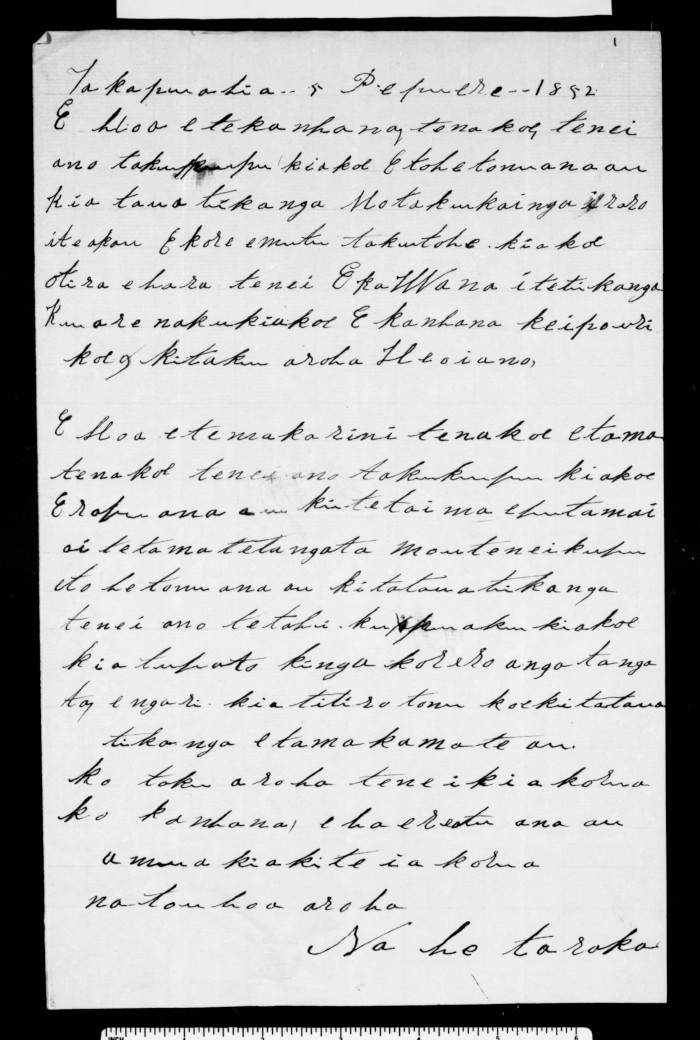 1
Takapuahia -- 5 Pepuere -- 1852
E Hoa etekanhana, tenakoe, tenei
ano takukupu kiakoe Etohetonuanaau
kia taua tikanga Motakukainga iraro
iteakau Ekore emutu takutohe kiakoe
otira ehara tenei Eka Wana itetikanga
Kuare nakukiakoe Ekanhana keipouri
koe, kitaku aroha Heoiano,
E Hoa etemakarini tenakoe etama
tenakoe tenei ano takukupu kiakoe
Erapu ana au kitetaima eputamai
ai tetamatetangata mouteneikupu
etohetonuana au kitatauatikanga
tenei ano tetahi kupuaku kiakoe
kiatupato kinga korero angatanga
ta, engari kiatitirotonu koekitataua
tikanga etamakamateau.
ko taku aroha teneikiakorua
ko kanhana, ehaereatu ana au
amua kiakite ia korua
natouhoa aroha
Na he taraka
INCH 1 2 3 4 5 6